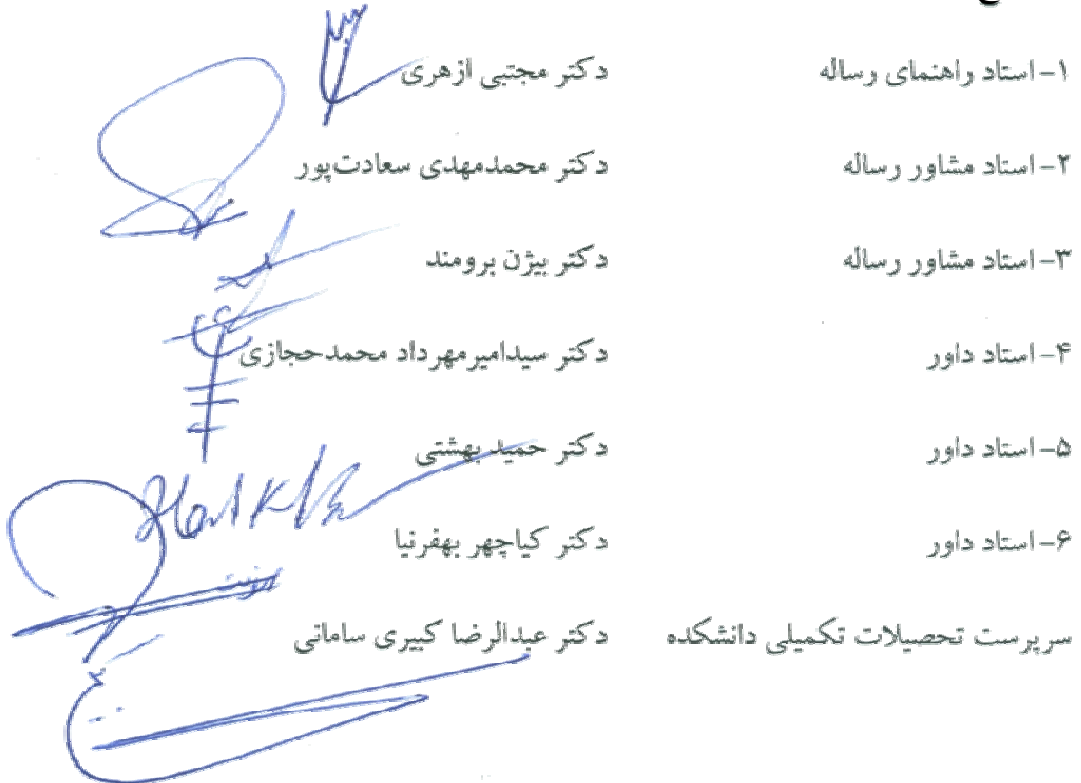 ۱- استاد راهنمای رساله دکتر مجتبی ازهری
۲- استاد مشاور رساله دکتر محمدمهدی سعادت‌پور
۳- استاد مشاور رساله دکتر بیژن برومند
۴- استاد داور دکتر سیدامیرمهرداد محمدحجازی
۵- استاد داور دکتر حمید بهشتی
۶- استاد داور دکتر کیاچهر بهفرنیا
سرپرست تحصیلات تکمیلی دانشکده دکتر عبدالرضا کبیری سامانی